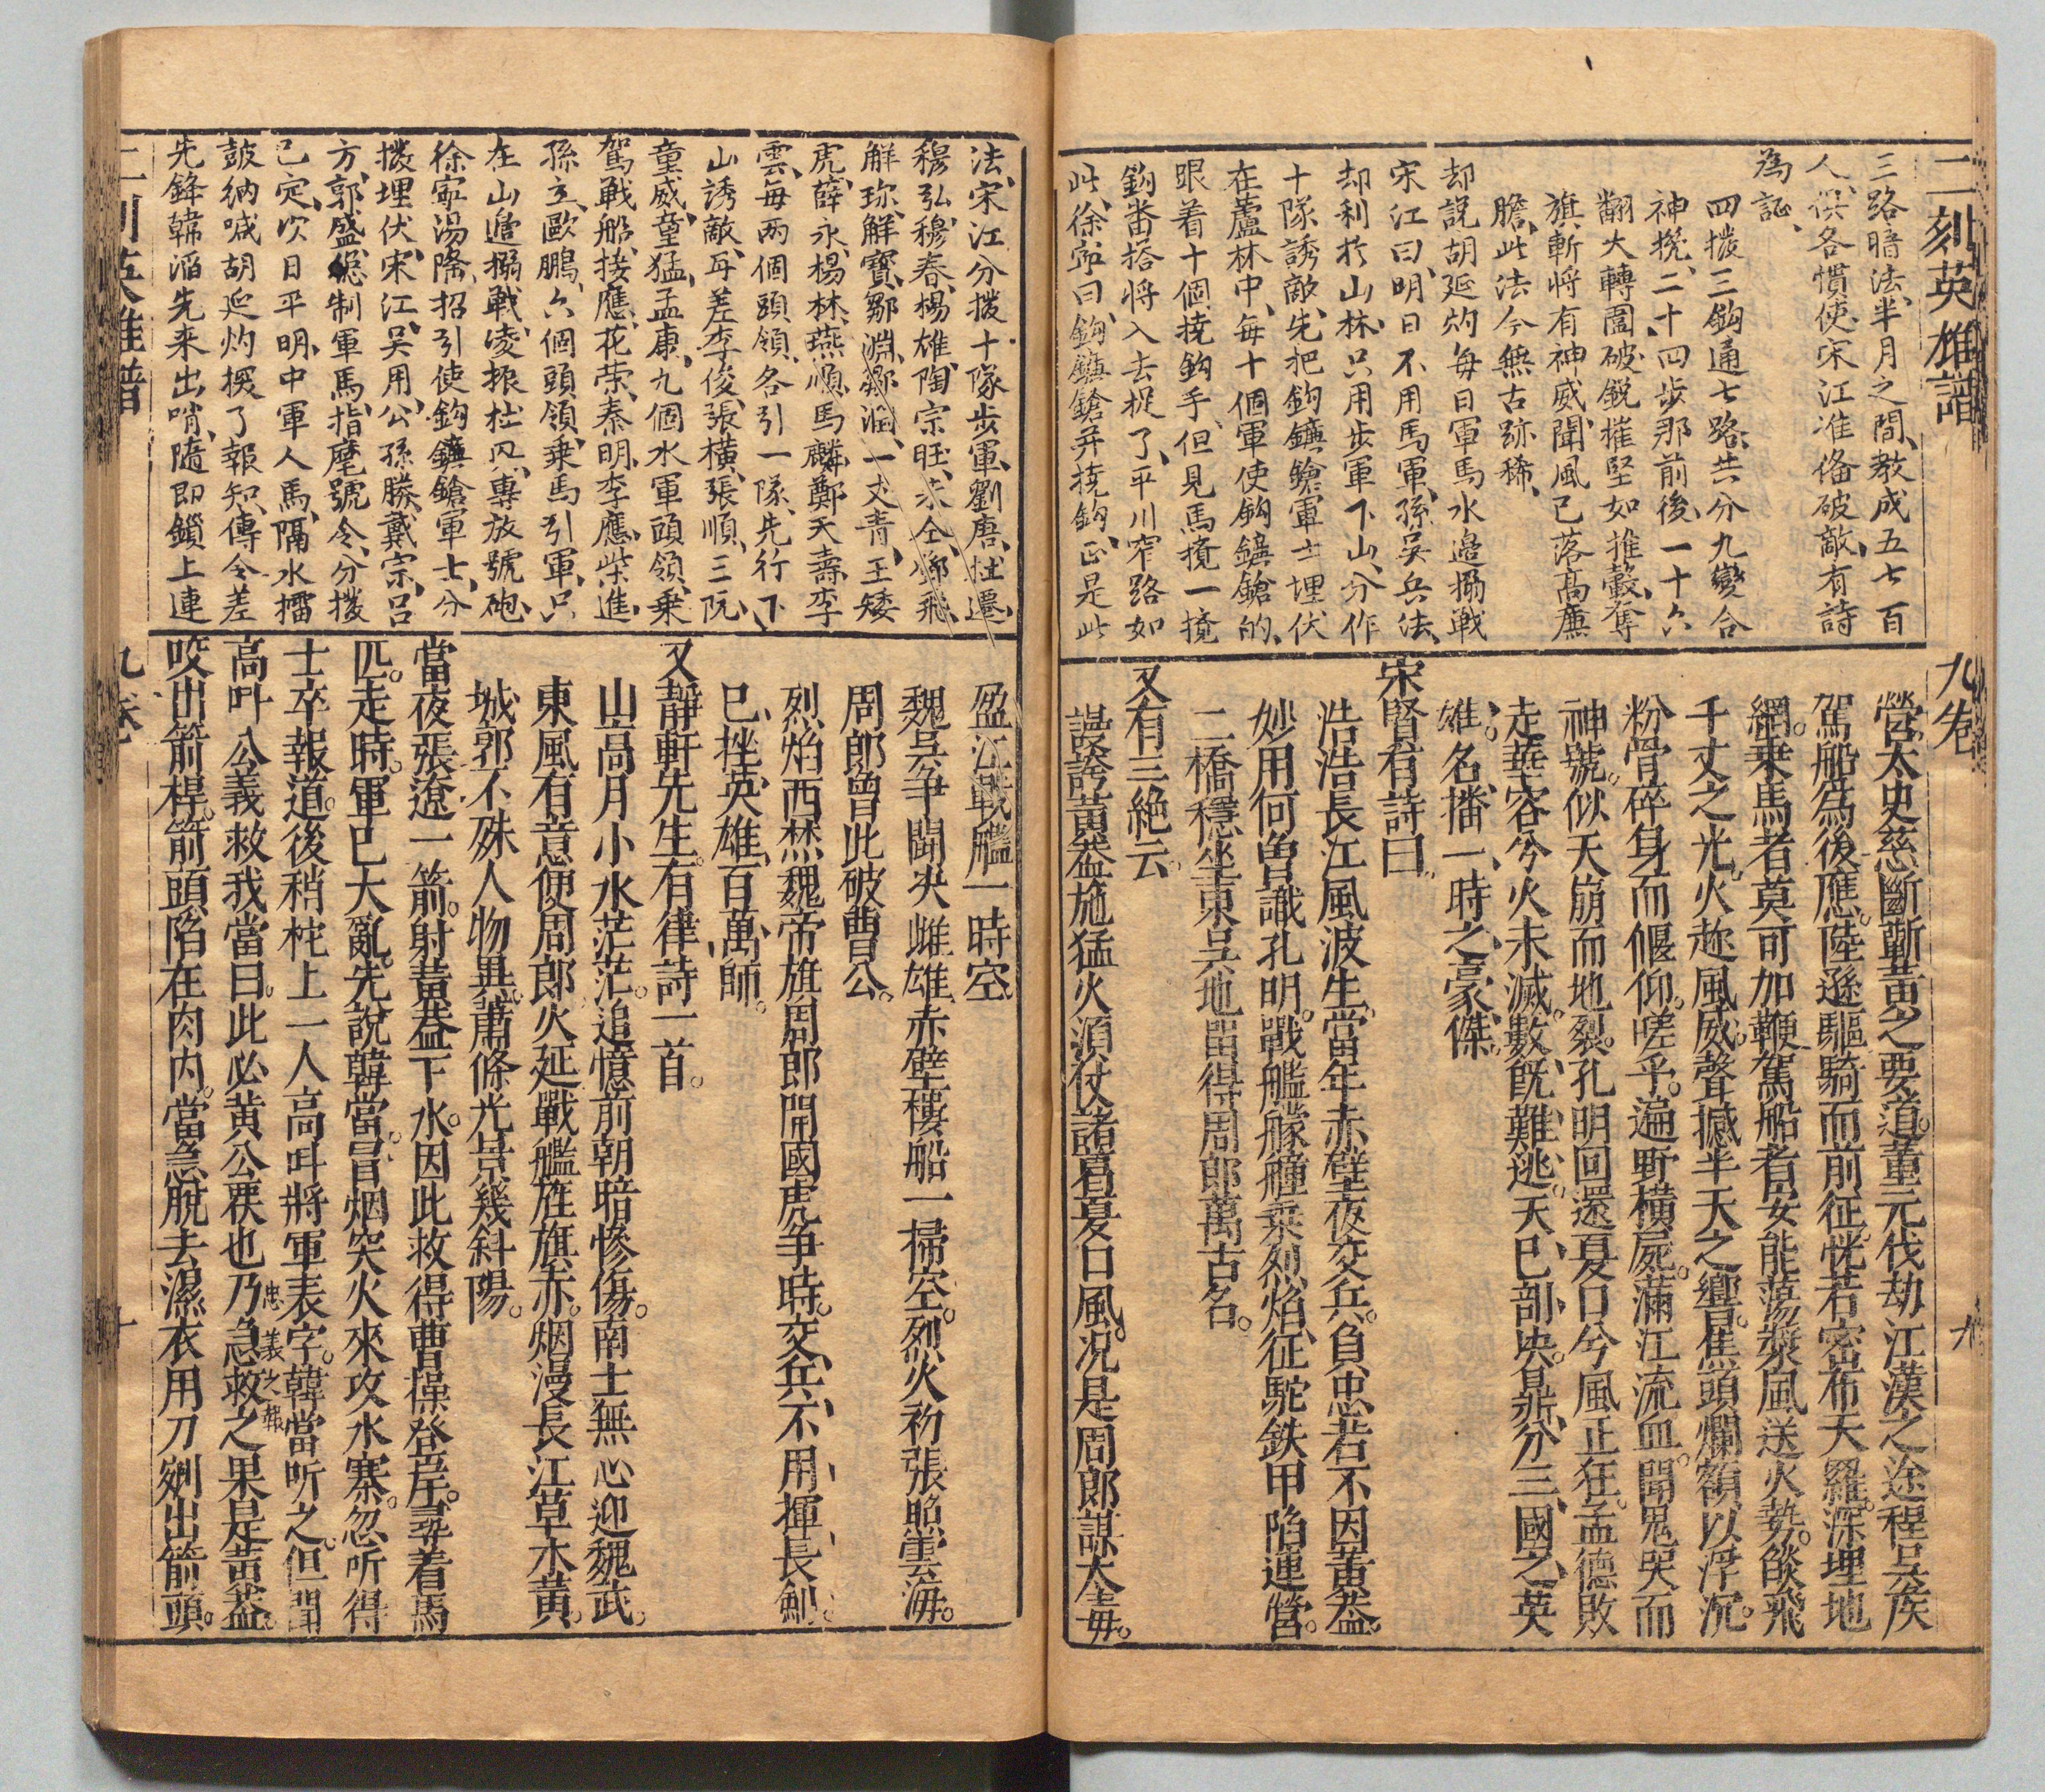 二刻英雄譜
三路暗法、半月之間、教成五七百
人、俱各慣使、宋江准俻破敵、有詩
為証、
四撥三鈎通七路、共分九變合
神挽、二十四步那前後、一十六
翻大轉圍、破銳摧堅如推轂、奪
旗斬将有神威、聞風已落高廉
膽、此法今無古跡稀、
却説胡延灼每日軍馬水邉搦戦
宋江曰、明日不用馬軍、孫吴兵法、
却利扵山林、只用步軍下山、分作
十隊誘敵、先把鈎鐮鎗軍士埋伏
在蘆林中、每十個軍使鈎鐮鎗的、
眼着十個撓鈎手、但見馬攪一攪
鈎番搭将入去捉了、平川窄路如
此、徐寕曰、鈎鐮鎗并撓鈎、正是此
九卷
九
營。太史慈斷斬黃之要道。董元伐劫江漢之途。程吳疾
駕船為後應。陸遜驅騎而前征。恍若密布天羅。深埋地
網。乗馬者莫可加鞭。駕船者安能蕩槳。風送火勢。焰飛
千丈之光。火趂風威。聲撼半天之響。焦頭爛額以浮沉。
粉骨碎身而偃仰。嗟乎。遍野橫屍。滿江流血。聞鬼哭而
神號。似天崩而地裂。孔明回還夏口兮風正狂。孟德敗
走華容兮火未滅。數既難逃。天已剖决。鼎分三國之英
雄。名播一時之豪傑。
宋賢有詩曰。
浩浩長江風波生。當年赤壁夜交兵。負忠若不因黃葢。
妙用何曾識孔明。戰艦艨艟乗烈焰。征駝鉄甲陷連營。
二橋穩坐東吳地。留得周郎萬古名。
又有三絶云。
謾誇黃葢施猛火。須仗諸君夏口風。况是周郎謀大毎。
法、宋江分撥十隊步軍、劉唐、杜遷、
穆弘、穆春、楊雄、陶宗旺、朱仝、鄧飛、
觧珍、觧寳、鄒淵、鄒潤、一丈青、王矮
虎、薛永、楊林、燕順、馬麟、鄭天壽、李
雲、每两個頭領、各引一隊、先行下
山誘敵、再差李俊、張横、張順、三阮、
童威、童猛、孟康、九個水軍頭領、乗
駕戦船、接應、花荣、秦明、李應、柴進、
孫立、歐鵬、六個頭領、乗馬引軍、只
在山邉搦戦、凌振杜興、專放號砲、
徐寕湯隆、招引使鈎鐮鎗軍士、分
撥埋伏、宋江、吴用、公孫勝、戴宗、吕
方、郭盛、総制軍馬、指麾號令、分撥
已定、次日平明、中軍人馬、隔水擂
皷納喊、胡延灼探了報知、傳令差
先鋒韓滔先来出哨、隨即鎖上連
盈江戰艦一時空。
魏吳爭鬪决雌雄。赤壁樓船一掃空。烈火初張照雲海。
周郎曾此破曹公。
烈焰西焚魏帝旗。周郎開國虎爭時。交兵不用揮長劍。
已挫英雄百萬師。
又靜軒先生。有律詩一首。
山高月小水茫茫。追憶前朝暗慘傷。南士無心迎魏武。
東風有意便周郎。火延戰艦旌旗赤。烟漫長江草木黃。
城郭不殊人物異。蕭條光景幾斜陽。
當夜張遼一箭。射黃葢下水。因此救得曹操登岸。尋着馬
匹。走時。軍已大亂。先說韓當。冒烟突火來攻水寨。忽听得
士卒報道。後稍柁上一人高叫將軍表字。韓當听之。但聞
高叫 公義救我。當曰。此必黃公覆也。乃急救之。果是黃葢。
忠義之報
咬出箭桿。箭頭陷在肉内。當急脫去濕衣。用刀剜出箭頭。
二刻英雄譜
九卷
十